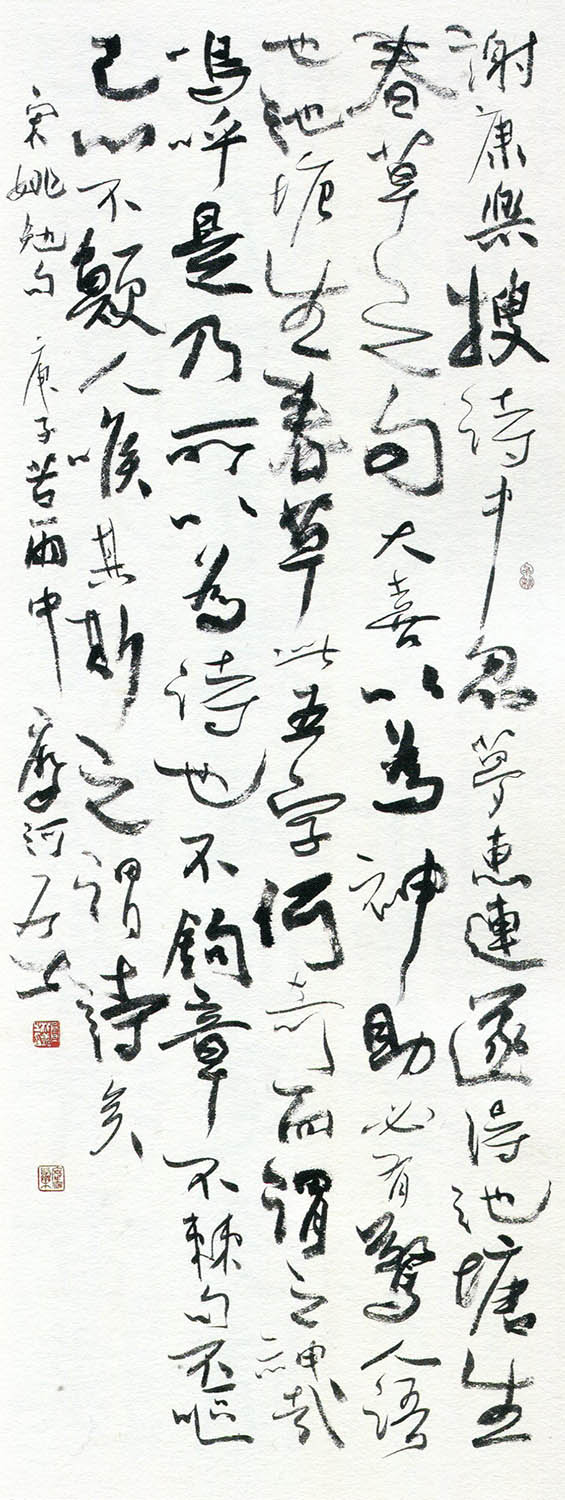 謝康樂搜詩中忽夢惠連遂得池塘生
春草之句大喜以為神助必有驚人語
也池塘生春草此五字何奇而謂之神哉
嗚呼是乃所以為詩也不鉤章不棘句不嘔
己心不顫人喉其斯之謂詩矣
宋姚勉句 庚子苦雨中 摩河居士